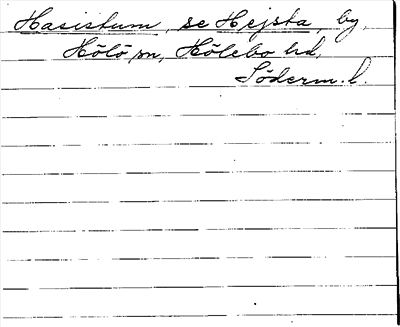 Hasistum, se Hejsta, by,
Hölö sn, Hölebo hd,
Söderm. l.